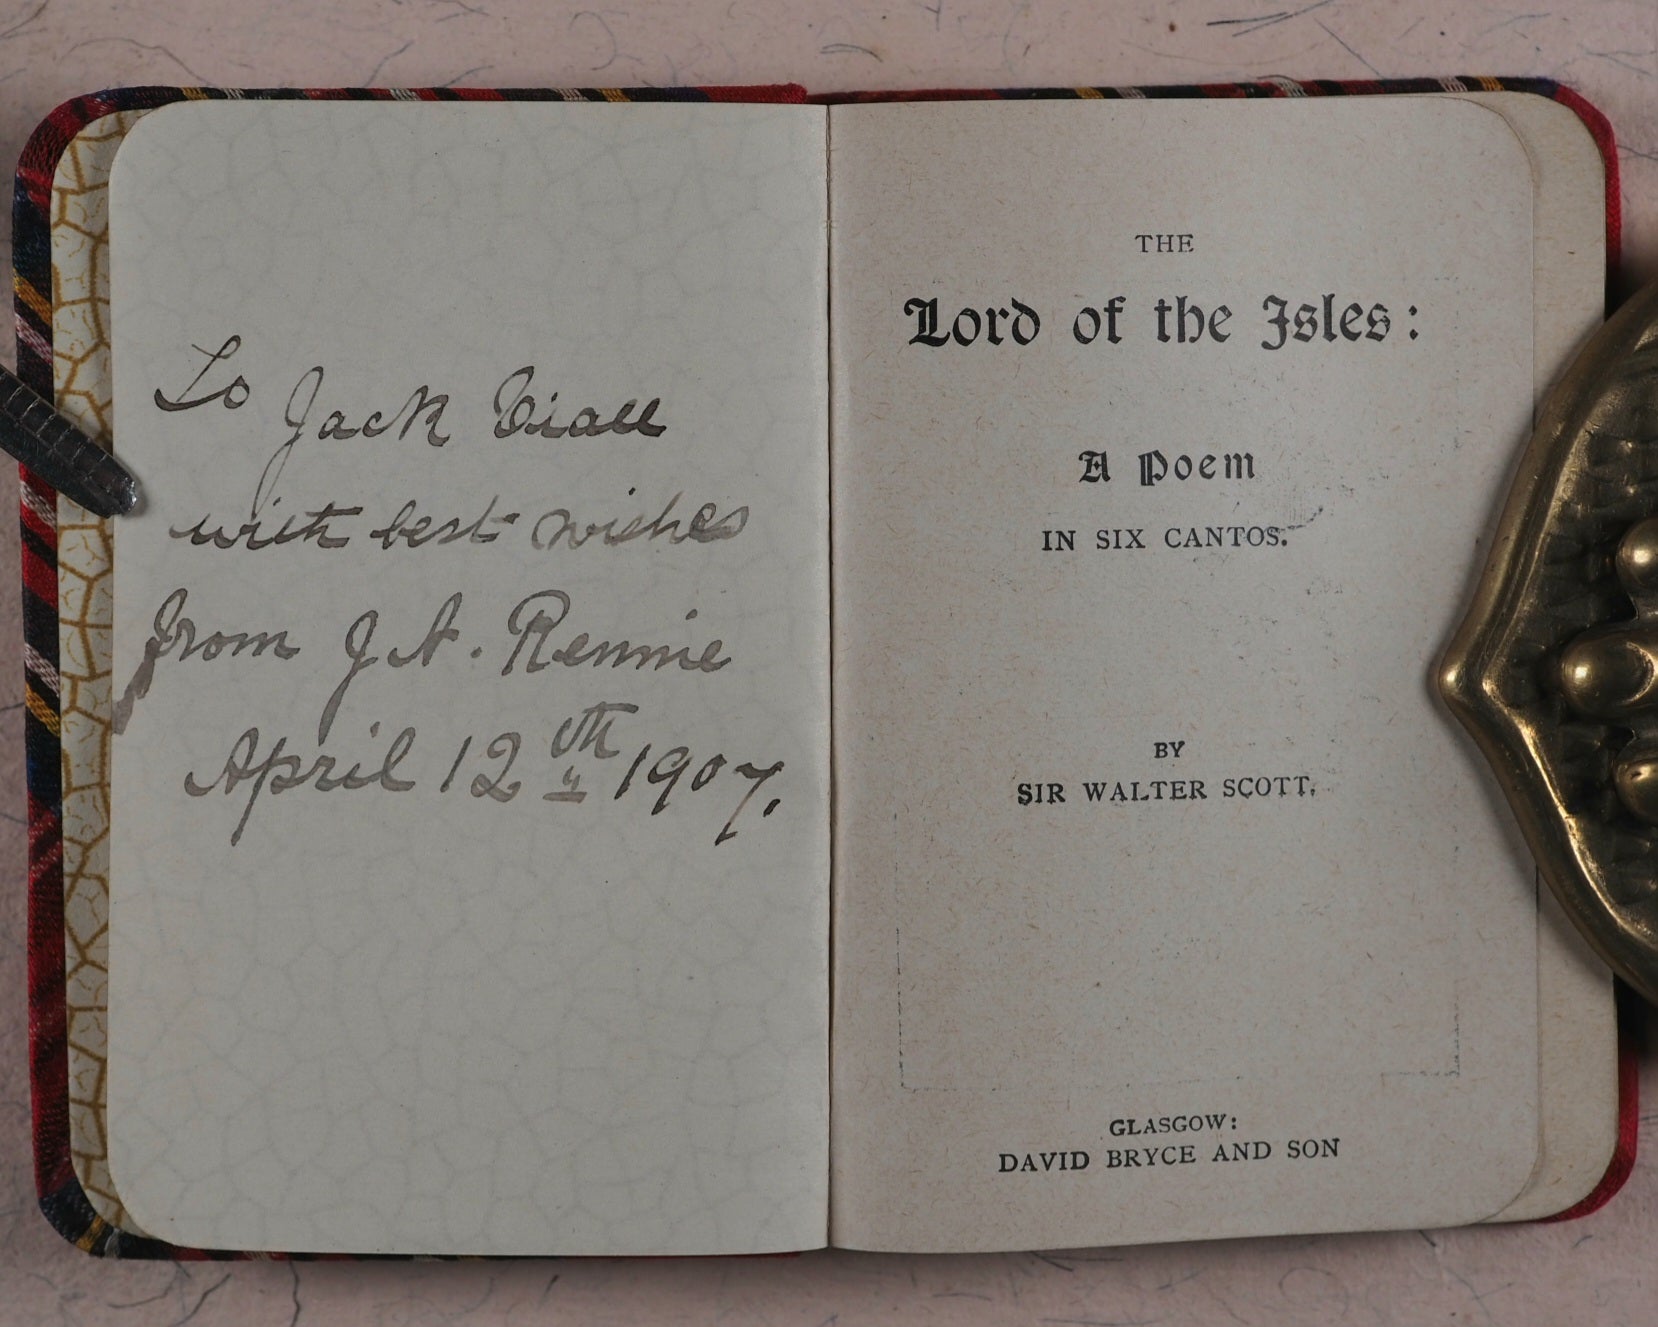 To
Jack Viall
with best wishes
from J A. Rennie
April 12th 1907.
THE
Lord of the Isles:
A Poem
IN SIX CANTOS.
BY
SIR WALTER SCOTT.
GLASGOW:
DAVID BRYCE AND SON